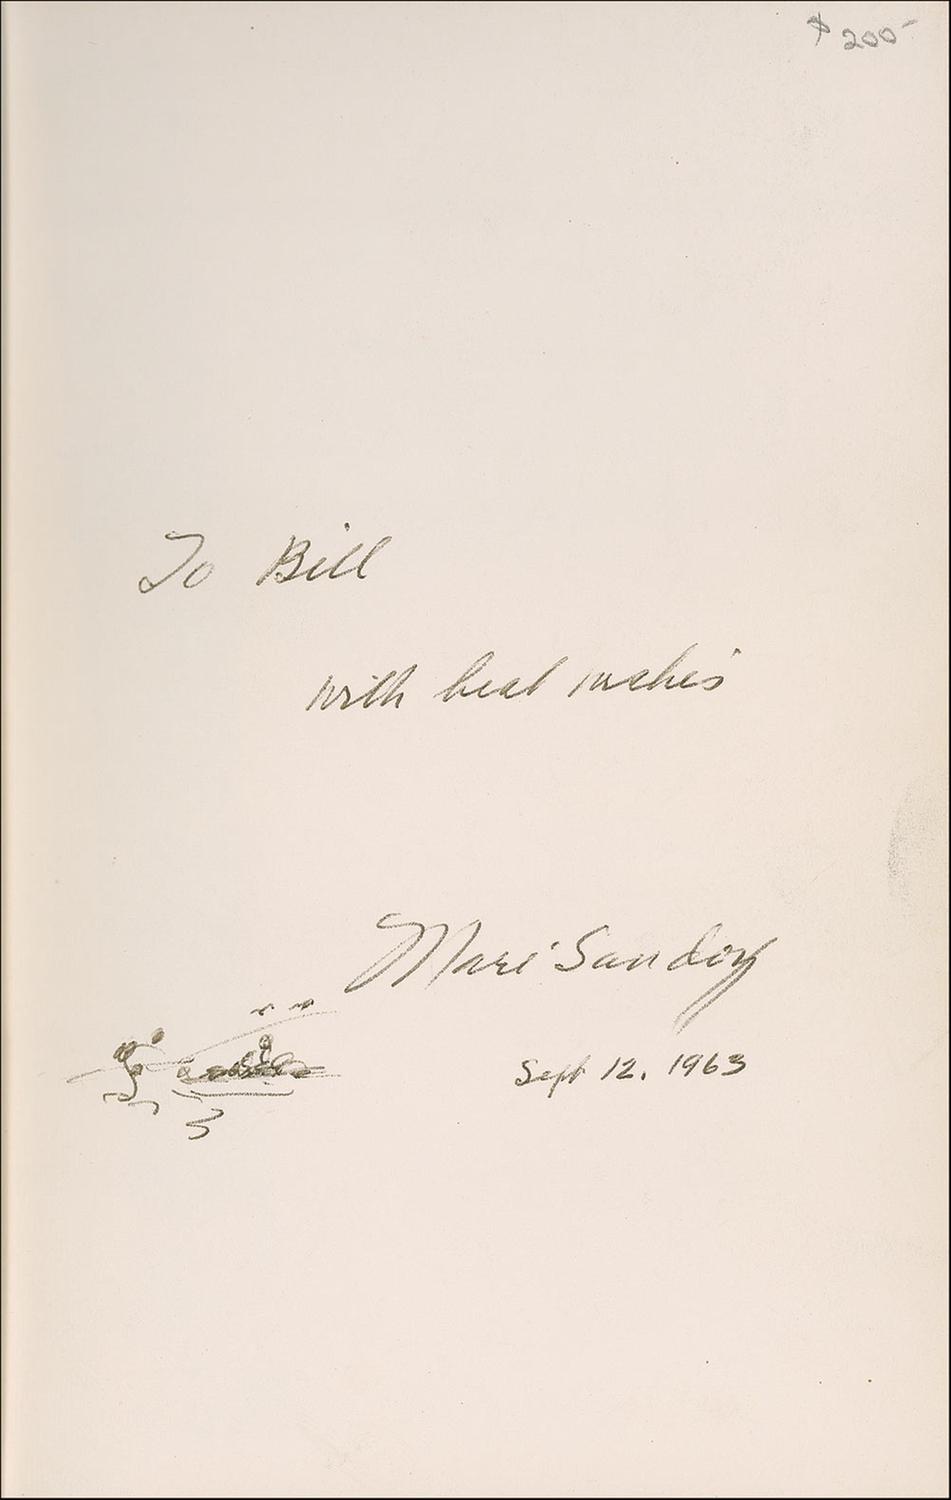 $200-
To Bill
with best wishes
Mari Sandoz
Sept 12, 1963